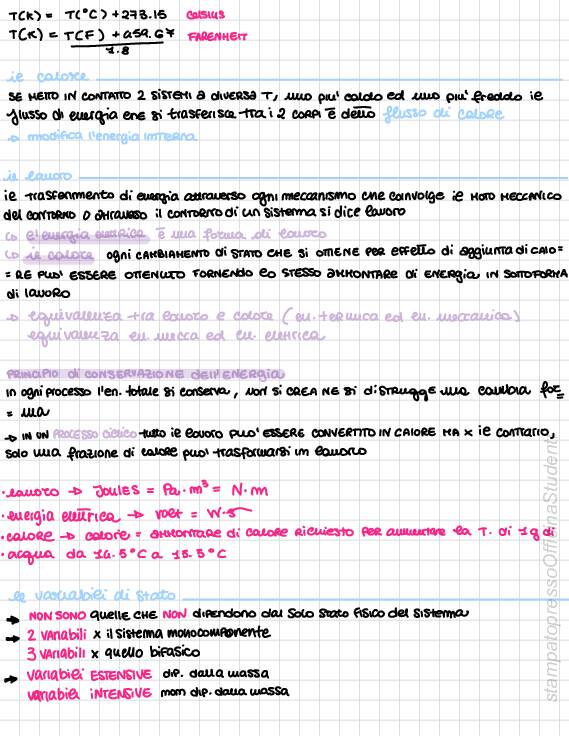 T(K) = T(°C) + 273.15 CELSIUS
T(K) = T(F) + 459.67 FARENHEIT
1.8
il calore
SE METTO IN CONTATTO 2 SISTEMI a DIVERSA T, uno più caldo ed uno più freddo il
flusso di energia che si trasferisce tra i 2 CORPI È detto flusso di calore
→ modifica l'energia INTERNA
il lavoro
il trasferimento di energia attraverso ogni meccanismo che coinvolge il MOTO MECCANICO
del CONTORNO o attraverso il contorno di un sistema si dice lavoro
↳ l'energia elettrica è una forma di lavoro
↳ il calore ogni CAMBIAMENTO di STATO CHE SI OTTIENE PER EFFETTO DI AGGIUNTA DI CALO=
= RE PUÒ ESSERE OTTENUTO FORNENDO LO STESSO AMMONTARE DI ENERGIA IN SOTTOFORMA
di lavoro
→ equivalenza tra lavoro e calore (en. termica ed en. meccanica)
equivalenza en. mecca ed en. elettrica
PRINCIPIO di CONSERVAZIONE DELL'ENERGIA
In ogni processo l'en. totale si conserva, NON SI CREA NE SI DISTRUGGE ma cambia for=
= ma
→ IN UN PROCESSO CICLICO tutto il lavoro PUÒ ESSERE CONVERTITO IN CALORE MA x il CONTRARIO,
solo una frazione di calore può trasformarsi in lavoro
• lavoro → Joules = Pa · m³ = N · m
• energia elettrica → volt = W · s
• calore → calorie = AMMONTARE di calore RICHIESTO PER aumentare la T. di 1g di
• acqua da 14.5°C a 15.5°C
le variabili di stato
→ NON SONO quelle CHE NON dipendono dal solo stato FISICO del Sistema
→ 2 variabili x il sistema monocomponente
3 variabili x quello bifasico
→ variabili ESTENSIVE dip. dalla massa
variabili INTENSIVE non dip. dalla massa
stampatopressoOfficinaStudent